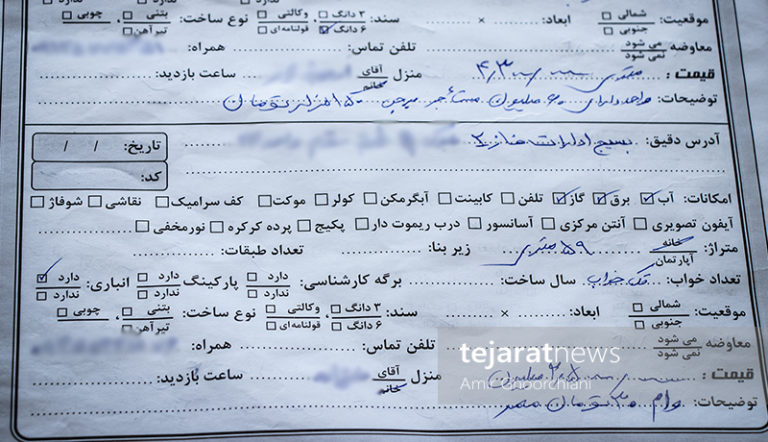 موقعیت: شمالی جنوبی ابعاد: × سند: ۳ دانگ ۶ دانگ وکالتی قولنامه‌ای نوع ساخت: بتنی تیرآهن چوبی ندارد ندارد
معاوضه می شود نمی شود تلفن تماس: همراه:
قیمت: متری منزل آقای خانم ساعت بازدید:
توضیحات: واحد دارای ۶۰ میلیون مستأجر میباشد
آدرس دقیق: بسیج ادارات فاز ۲
تاریخ: / /
کد:
امکانات: آب برق گاز تلفن کابینت آبگرمکن کولر موکت کف سرامیک نقاشی شوفاژ
آیفون تصویری آنتن مرکزی آسانسور درب ریموت دار پکیج پرده کرکره نورمخفی
متراژ: خانه آپارتمان ۵۹ متری زیر بنا: تعداد طبقات:
تعداد خواب: تک خواب سال ساخت: برگه کارشناسی: دارد ندارد پارکینگ دارد ندارد انباری: دارد ندارد
موقعیت: شمالی جنوبی ابعاد: × سند: ۳ دانگ ۶ دانگ وکالتی قولنامه‌ای نوع ساخت: بتنی تیرآهن چوبی
معاوضه می شود نمی شود تلفن تماس: همراه:
tejaratnews
قیمت: میلیون منزل آقای خانم ساعت بازدید:
Amir Ghoorchiani
توضیحات: وام ۳۰ تومان